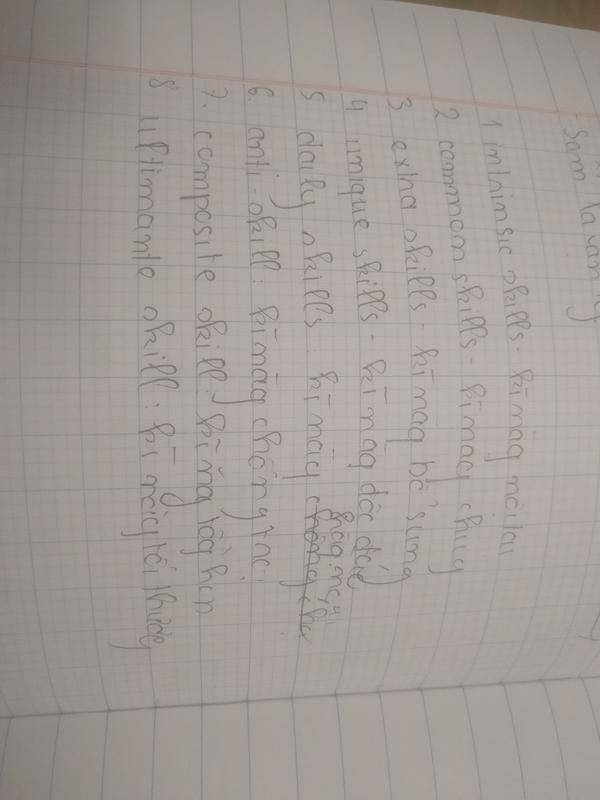 1 intrinsic skills - kĩ năng nội tại
2 common skills - kĩ năng chug
3 extra skills - kĩ năng bổ sung
4 unique skills - kĩ năg độc đáo
5 daily skills: kĩ năng hàg ngày
6. anti-skill: kĩ năg chống lại
7. composite skill: kĩ năng tổg hợp
8 ultimante skill: kĩ năng tối thượg